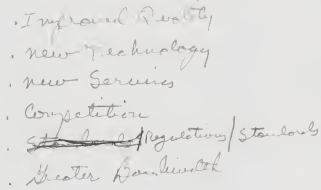 . Improved Quality
. new Technology
. new Services
. Competition
. Standards/Regulations/Standards
. Greater Bandwidth